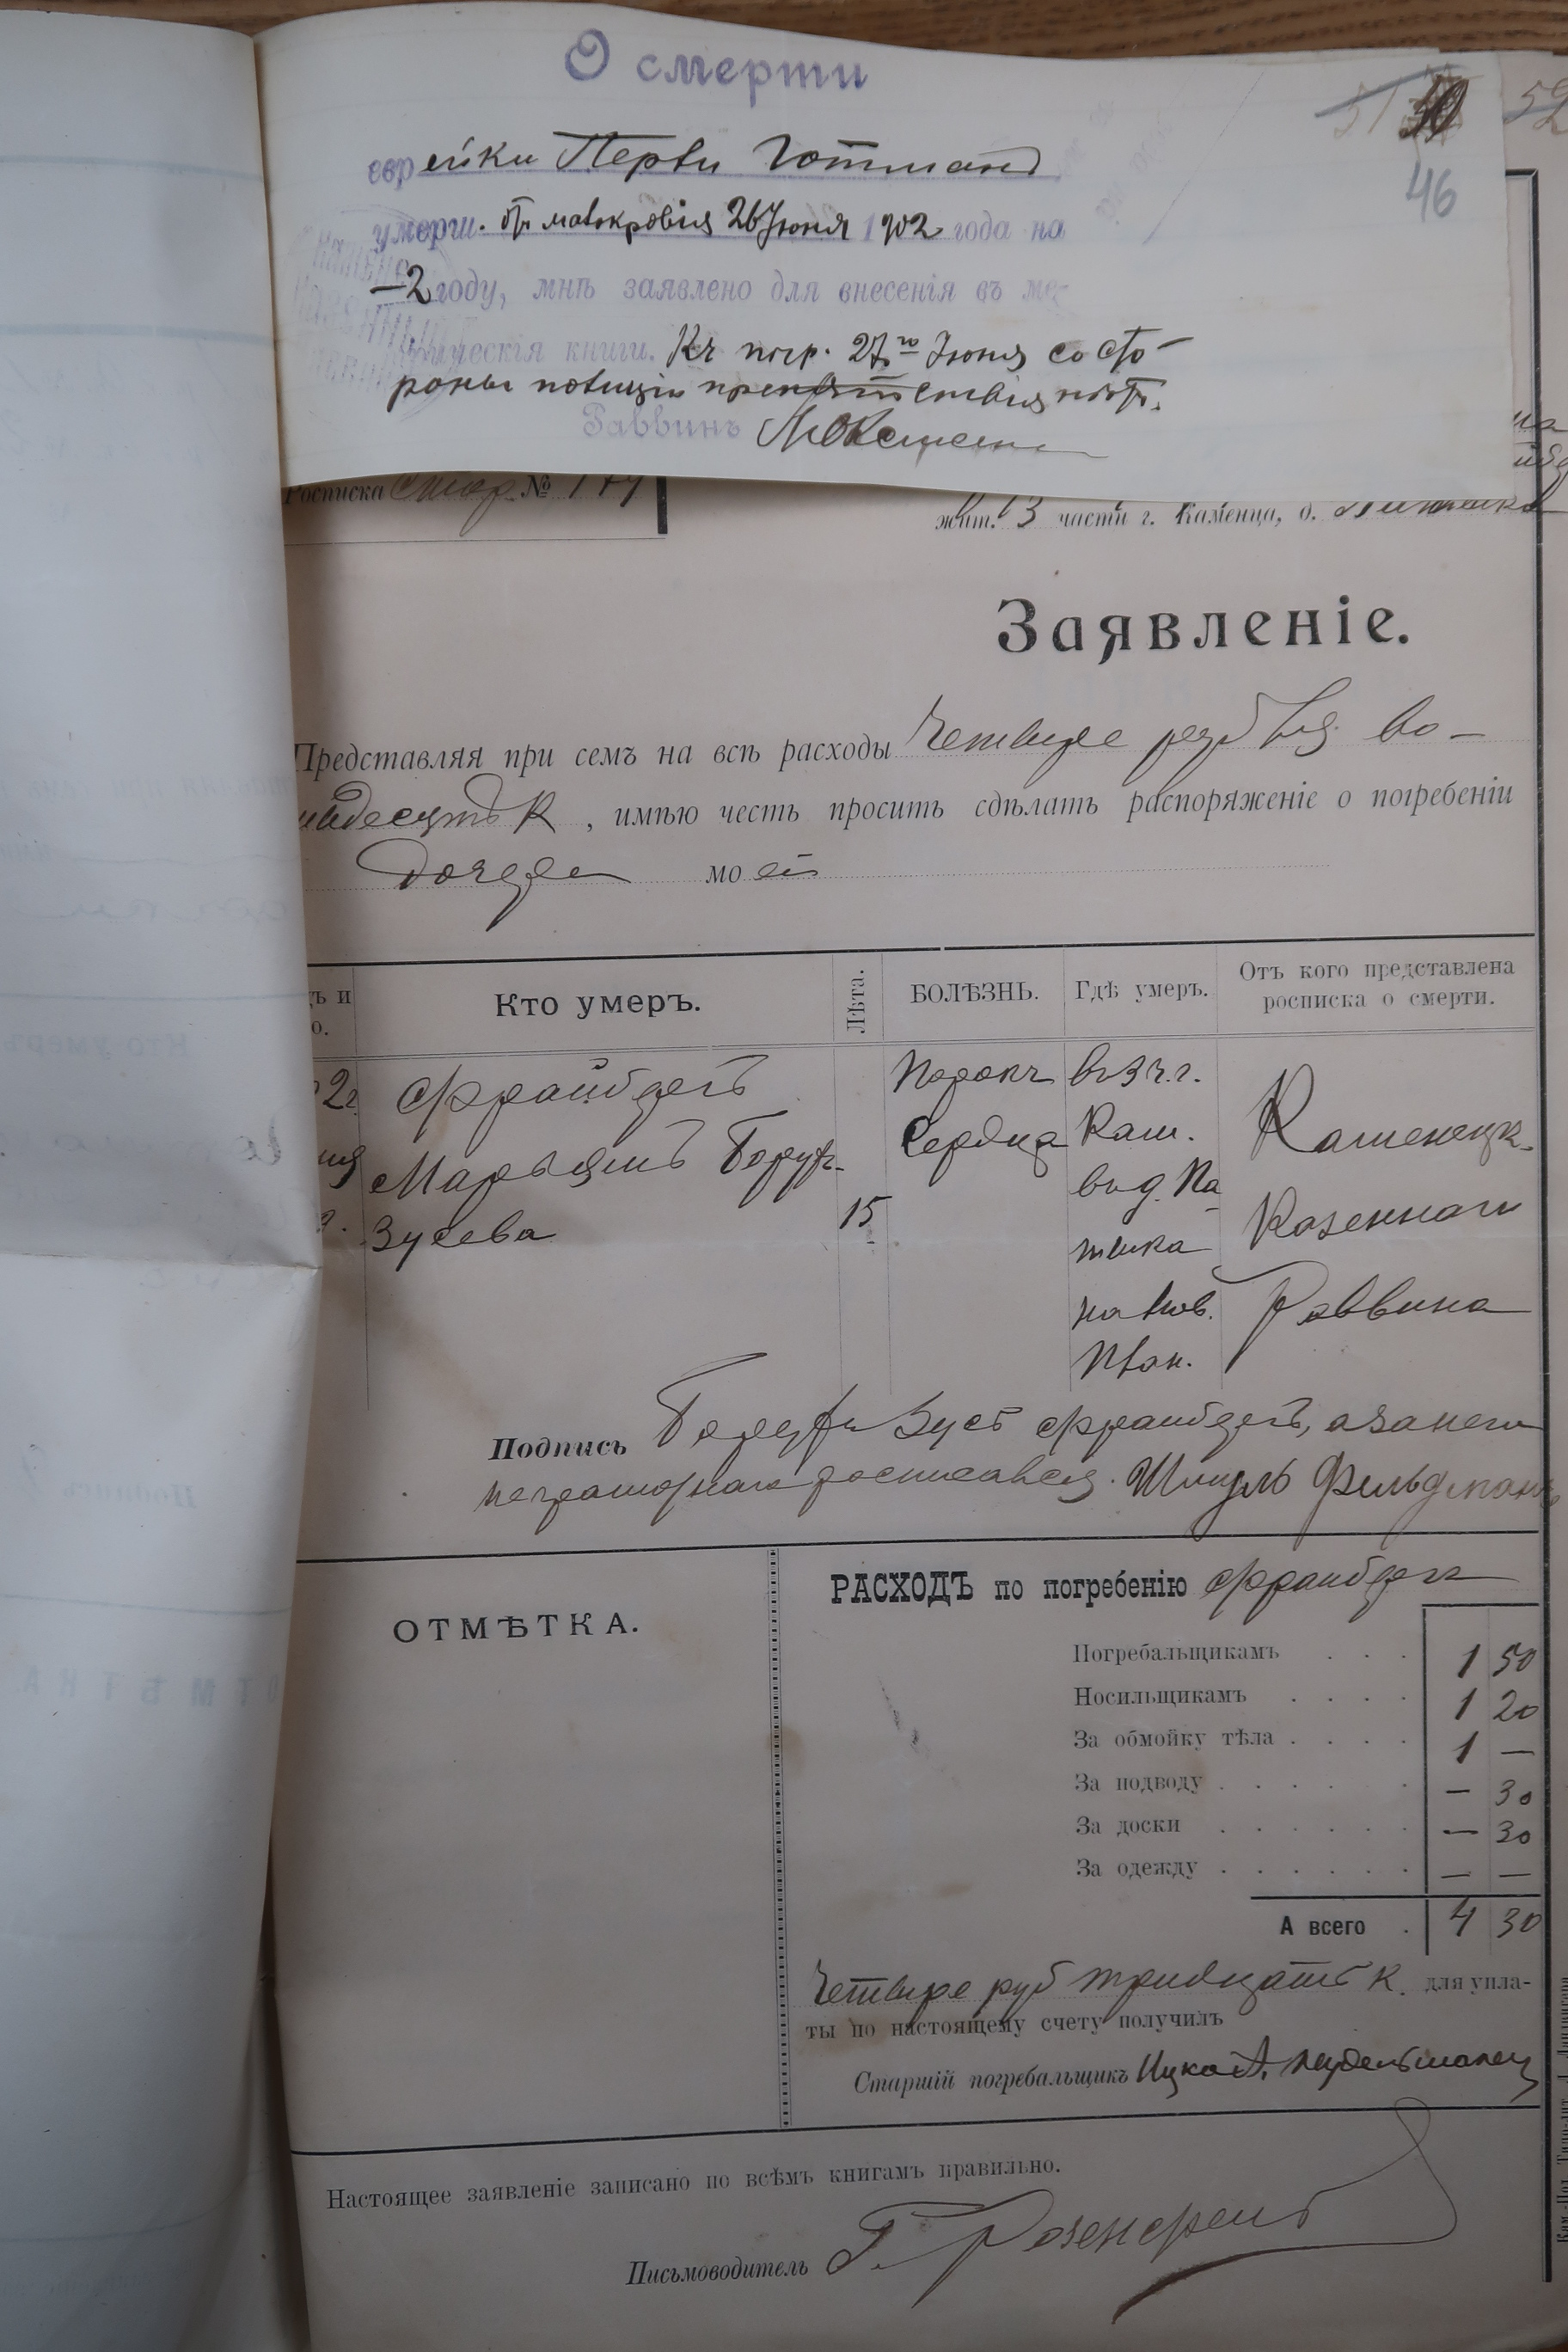 О смерти
еврейки Перли Готманъ
умерш. отъ малокровія 26 Іюня 1902 года на
—2 году, мнѣ заявлено для внесенія въ ме
рическія книги. Къ погр. 27го Іюня со сто-
роны полиціи препятствія нѣтъ.
Раввинъ
51
46
52
Росписка стар. №
жит. 3 части г. Каменца, д.
Заявленіе.
Представляя при семъ на всѣ расходы четыре рубля во-
имдесятъ К, имѣю честь просить сдѣлать распоряженіе о погребеніи
дочери моей
ъ и
о.
Кто умеръ.
Лѣта.
БОЛѢЗНЬ.
Гдѣ умеръ.
Отъ кого представлена
росписка о смерти.
2г
Фрайбергъ
Марьямъ Борухъ-
Зусева
15
Порокъ
Сердца
въ 3 ч. г.
Кам.
въ д.
на Нов.
План.
Каменецк.
Казеннаго
Раввина
Подпись Борухъ Зусь Фрайбергъ, а за него
неграмотнаго росписался. Шмуль Фельдманъ
ОТМѢТКА.
РАСХОДЪ по погребенію Фрайбергъ
Погребальщикамъ . . . 1 50
Носильщикамъ . . . . 1 20
За обмойку тѣла . . . . 1 —
За подводу . . . . . — 30
За доски . . . . . . — 30
За одежду . . . . . . — —
А всего . 4 30
Четыре руб тридцать К. для упла-
ты по настоящему счету получилъ
Старшій погребальщикъ Ицко
Настоящее заявленіе записано по всѣмъ книгамъ правильно.
Письмоводитель Г. Розенфельдъ